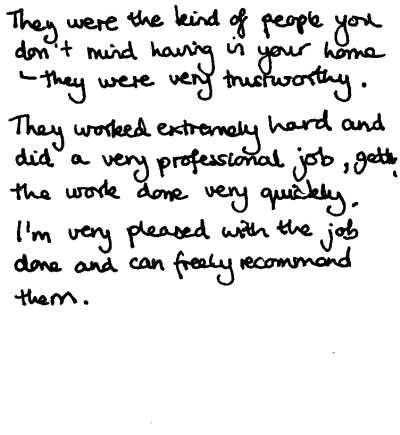 They were the kind of people you
don't mind having in your home
- they were very trustworthy.
They worked extremely hard and
did a very professional job, gett
the work done very quickly.
I'm very pleased with the job
done and can freely recommend
them.